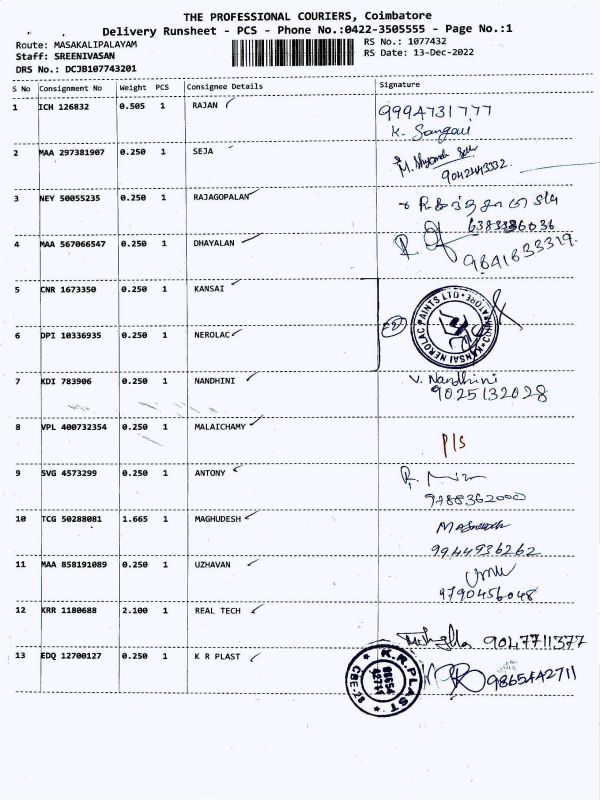 THE PROFESSIONAL COURIERS, Coimbatore
Delivery Runsheet - PCS - Phone No.:0422-3505555 - Page No.:1
Route: MASAKALIPALAYAM
RS No.: 1077432
Staff: SREENIVASAN
RS Date: 13-Dec-2022
DRS No.: DCJB107743201
S No Consignment No Weight PCS Consignee Details Signature
1 ICH 126832 0.505 1 RAJAN 9994731777
K. Sangavi
2 MAA 297381907 0.250 1 SEJA
3 NEY 50055235 0.250 1 RAJAGOPALAN
6383386036
4 MAA 567066547 0.250 1 DHAYALAN 9841633319.
5 CNR 1673350 0.250 1 KANSAI
KANSAI NEROLAC PAINTS LTD * COIMBATORE *
6 DPI 10336935 0.250 1 NEROLAC
7 KDI 783906 0.250 1 NANDHINI V. Nandhini
9025132028
8 VPL 400732354 0.250 1 MALAICHAMY P/S
9 SVG 4573299 0.250 1 ANTONY
9788362000
10 TCG 50288081 1.665 1 MAGHUDESH
9944936262
11 MAA 858191089 0.250 1 UZHAVAN
9790456048
12 KRR 1180688 2.100 1 REAL TECH
9047711377
13 EDQ 12700127 0.250 1 K R PLAST 9865442711
* K.R. PLAST * CBE-28